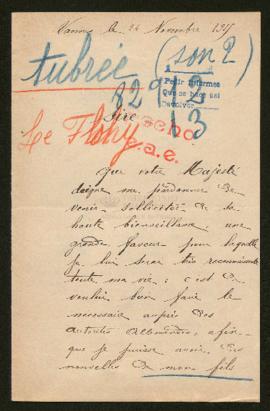 Vannes le 24 Novembre 1915
(son 2)
tubrée
Pedir informes
Que se haga así
Devolver
82912
13
Sire
Le Flohy
Que votre Majesté
daigne me pardonner de
venir solliciter de sa
haute bienveillance une
grande faveur pour laquelle
je lui serai très reconnaissante
toute ma vie ; c'est de
vouloir bien faire le
nécessaire auprès des
autorités allemandes, afin
que je puisse avoir des
nouvelles de mon fils